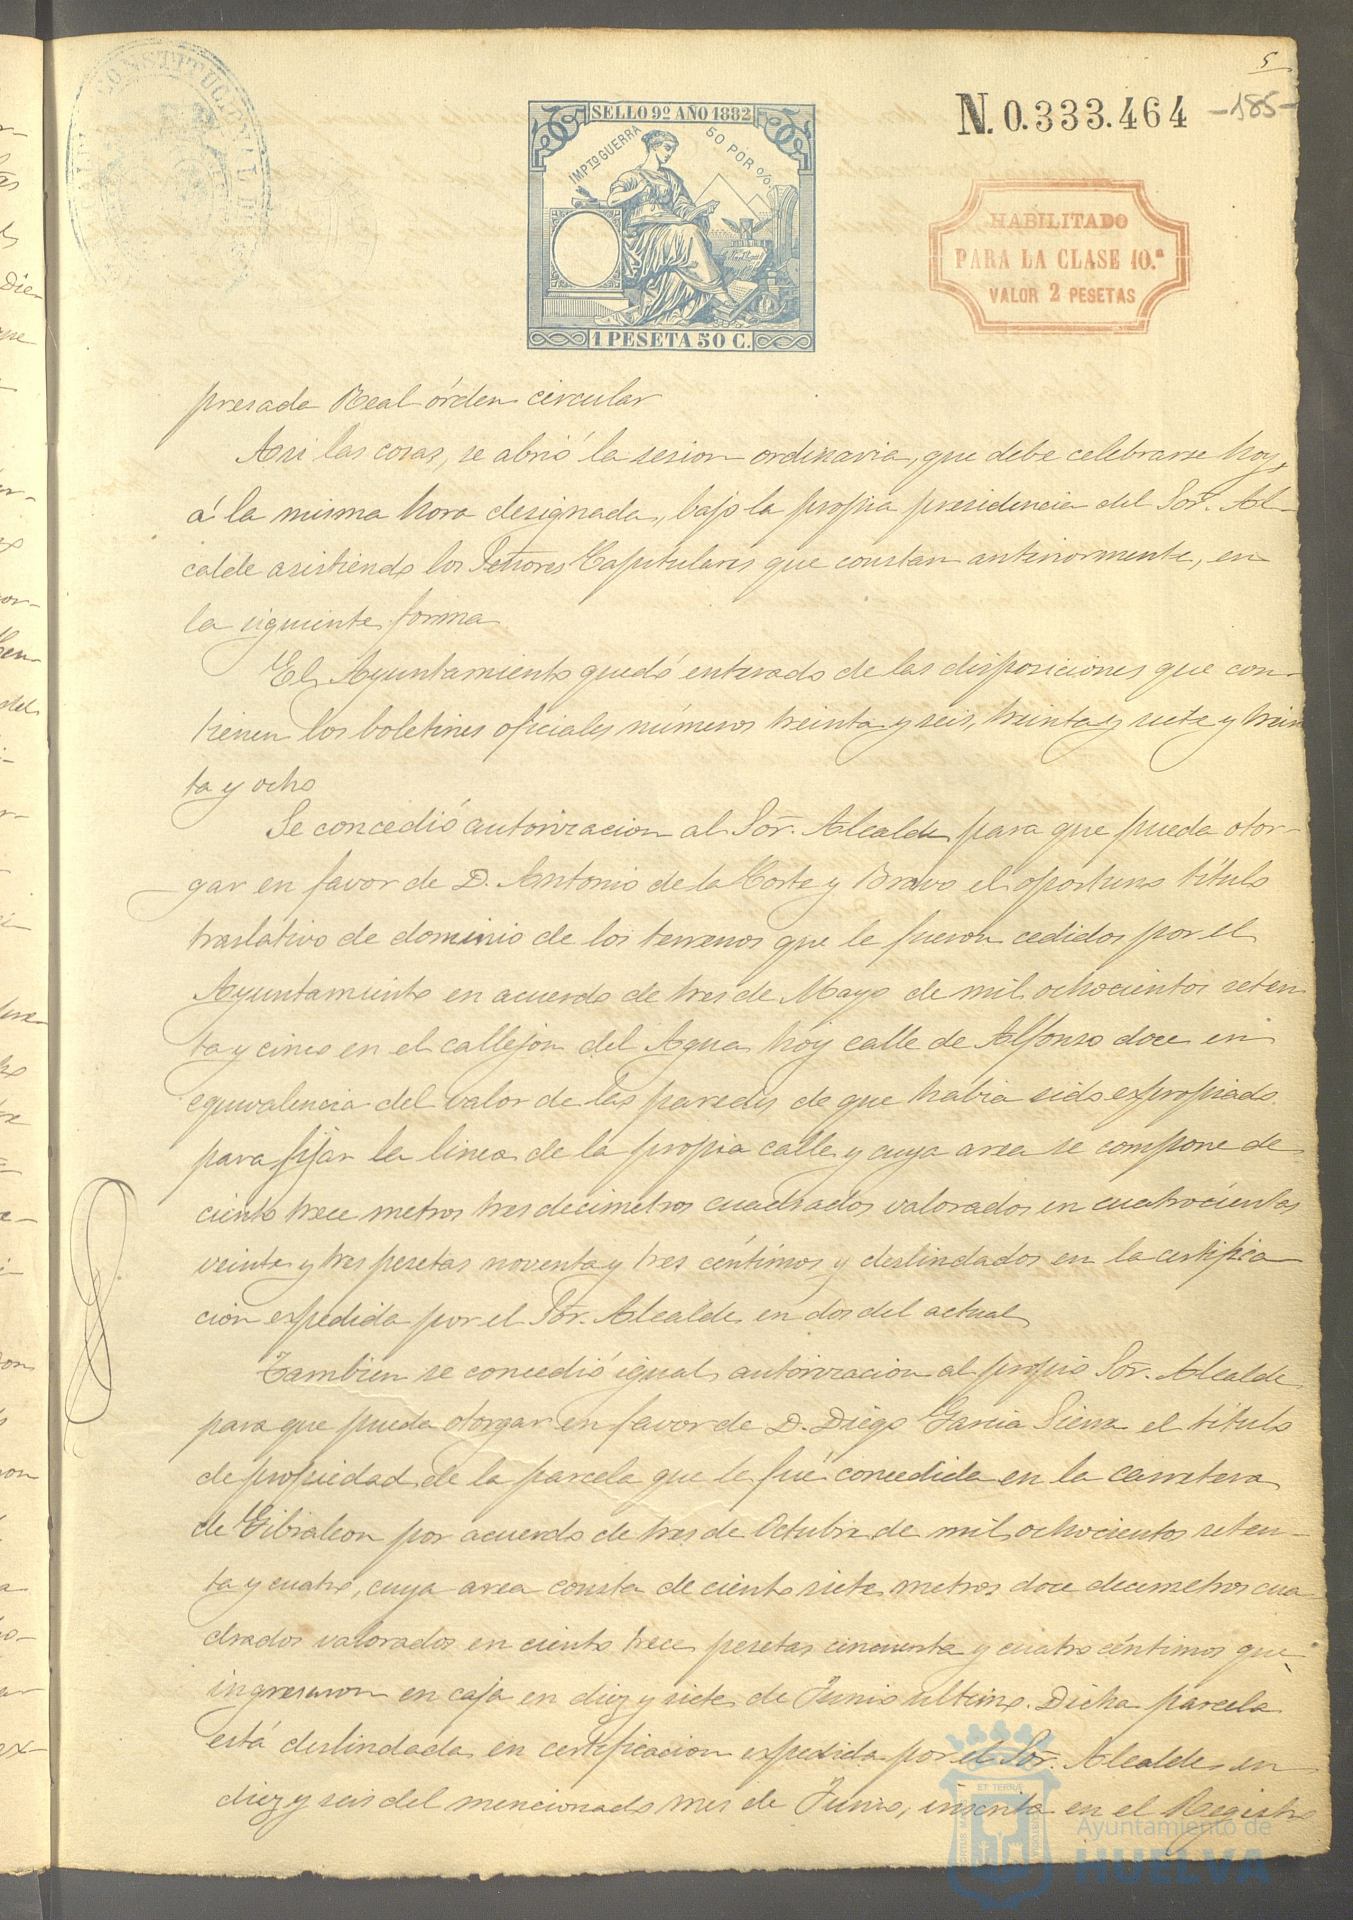 5
N. 0.333.464
-185-
SELLO 9º AÑO 1882
IMPTO GUERRA 50 POR %
1 PESETA 50 C.
HABILITADO
PARA LA CLASE 10.ª
VALOR 2 PESETAS
CONSTITUCIONAL
presada Real órden circular
Asi las cosas, se abrió la sesion ordinaria, que debe celebrarse hoy,
á la misma hora designada, bajo la propia presidencia del Sor. Al-
calde asistiendo los Señores Capitulares que constan anteriormente, en
la siguiente forma
El Ayuntamiento quedó enterado de las disposiciones que con-
tienen los boletines oficiales números treinta y seis, treinta y siete y trein
ta y ocho
Se concedió autorizacion al Sor. Alcalde para que pueda otor-
gar en favor de D. Antonio de la Corte y Bravo el oportuno título
traslativo de dominio de los terrenos que le fueron cedidos por el
Ayuntamiento en acuerdo de tres de Mayo de mil ochocientos seten
ta y cinco en el callejon del Agua hoy calle de Alfonso doce en
equivalencia del valor de las paredes de que habia sido expropiado
para fijar la linea de la propia calle y cuya area se compone de
ciento trece metros tres decimetros cuadrados valorados en cuatrocientas
veinte y tres pesetas noventa y tres céntimos y deslindados en la certifica
cion expedida por el Sor. Alcalde en dos del actual
Tambien se concedió igual autorizacion al propio Sor. Alcalde
para que pueda otorgar en favor de D. Diego Garcia Sierra el título
de propiedad de la parcela que le fué concedida en la carretera
de Gibraleon por acuerdo de tres de Octubre de mil ochocientos seten-
ta y cuatro, cuya area consta de ciento siete metros doce decimetros cua
drados valorados en ciento trece pesetas cincuenta y cuatro céntimos que
ingresaron en caja en diez y siete de Junio ultimo. Dicha parcela
está deslindada en certificacion expedida por el Sor. Alcalde en
diez y seis del mencionado mes de Junio, inscrita en el Registro
Ayuntamiento de
HUELVA